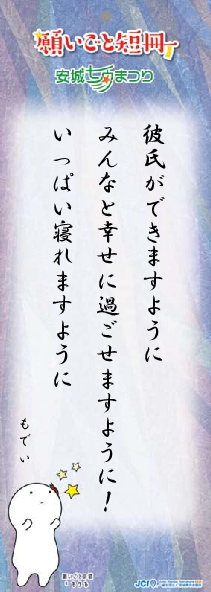 願いごと短冊
安城七夕まつり
彼氏ができますように
みんなと幸せに過ごせますように!
いっぱい寝れますように
もでぃ
願いごと短冊
JCI